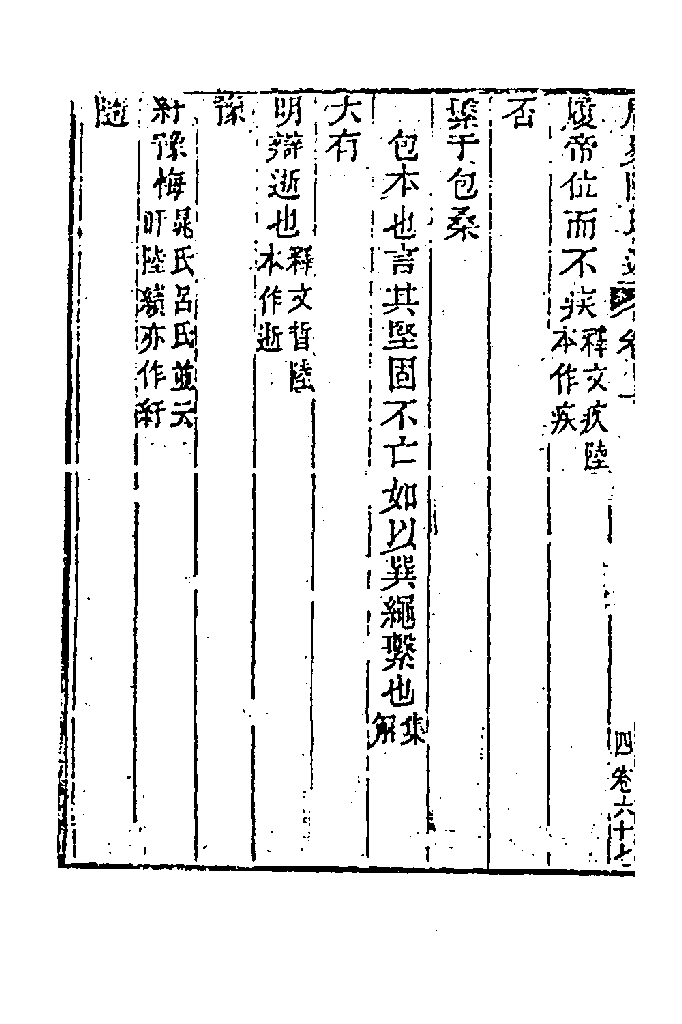 周易陸氏述卷上
四 卷六十七
履帝位而不疾釋文疚陸本作疾
否
繫于包桑
包本也言其堅固不亡如以巽繩繫也集解
大有
明辯逝也釋文晢陸本作逝
豫
紆豫悔晁氏呂氏並云盱陸績亦作紆
隨